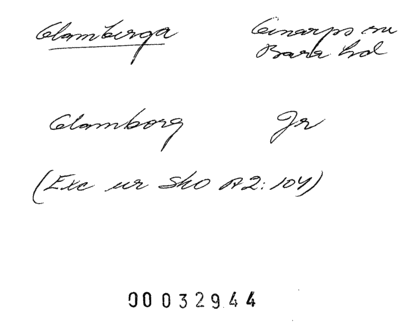 Glamberga Genarps sn
Bara hd
Glamborg Jr
(Exc ur Sko A2:104)
00032944